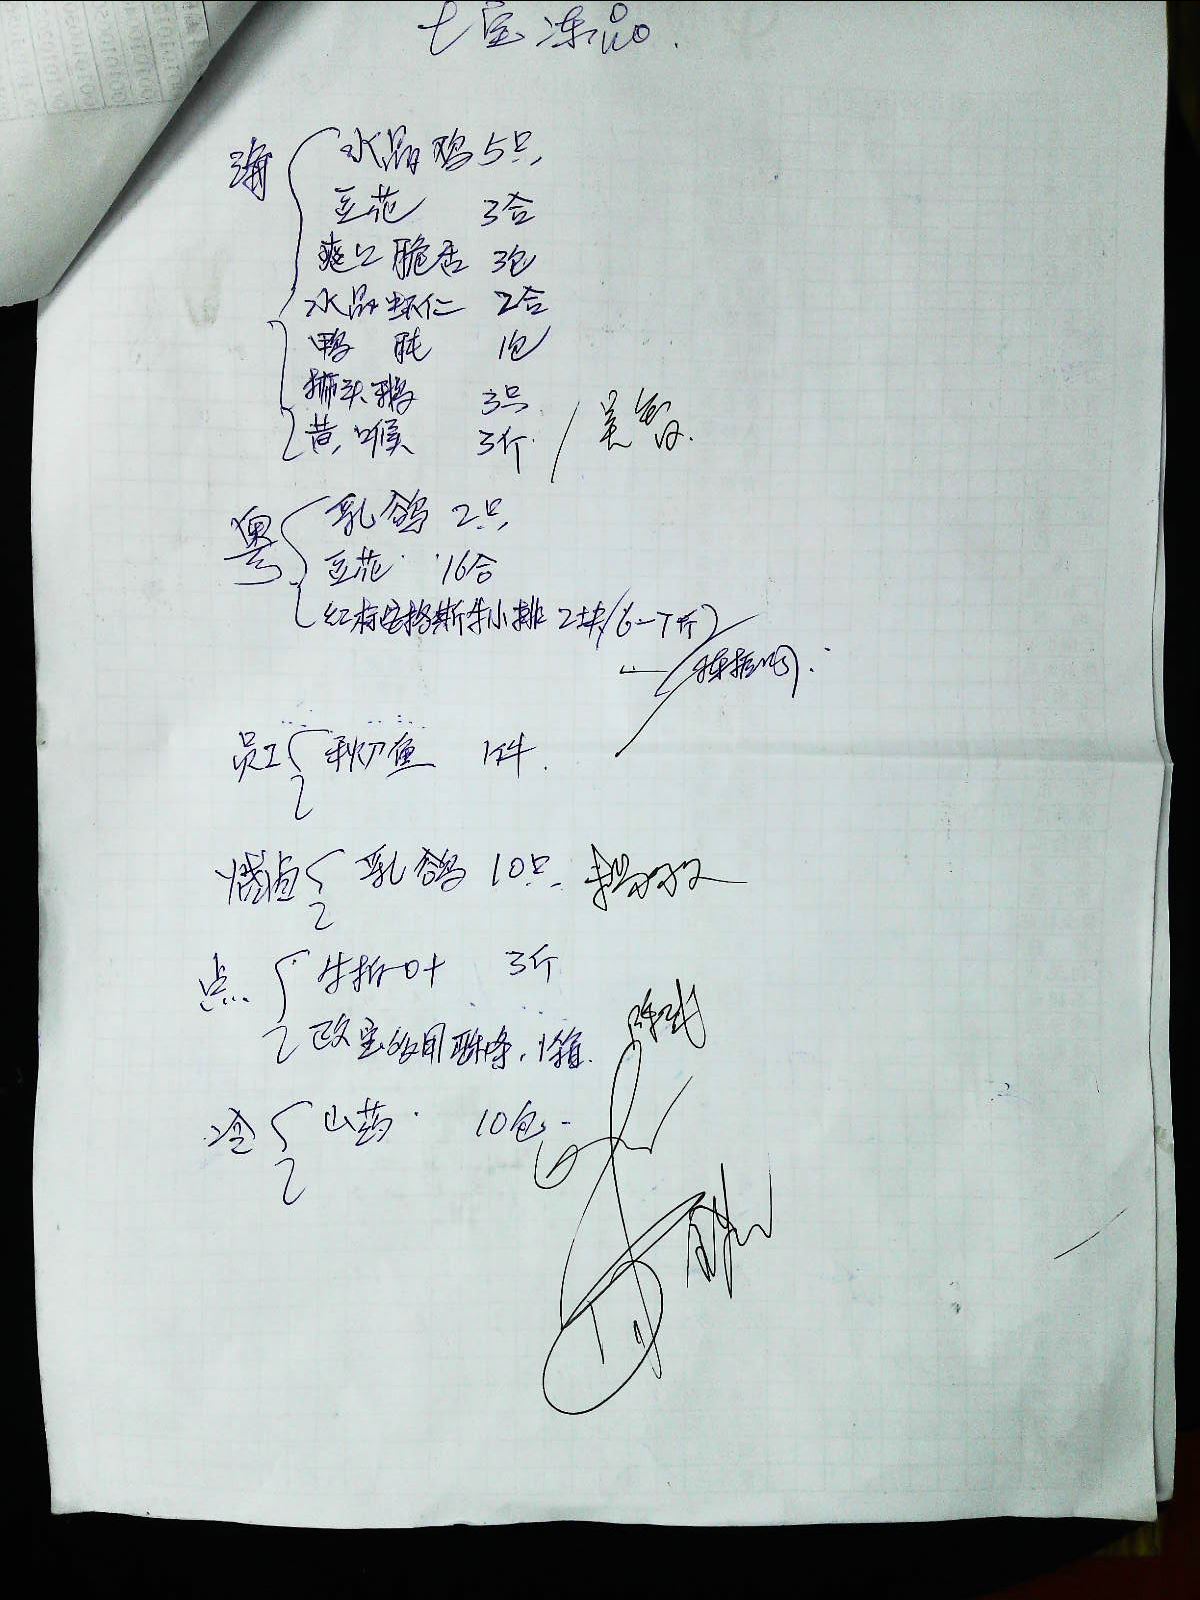 七宝冻品.
海
水晶鸡 5只,
豆花 3合
爽口脆舌 3包
水晶虾仁 2合
鸭肫 1包
狮头鹅 3只
黄,喉 3斤.
粤
乳鸽 2只,
豆花 16合
红标安格斯牛小排 2块(6-7斤)
员工 秋刀鱼 1件.
烧卤 乳鸽 10只.
点. 牛柏叶 3斤
1箱.
冷 山药. 10包.